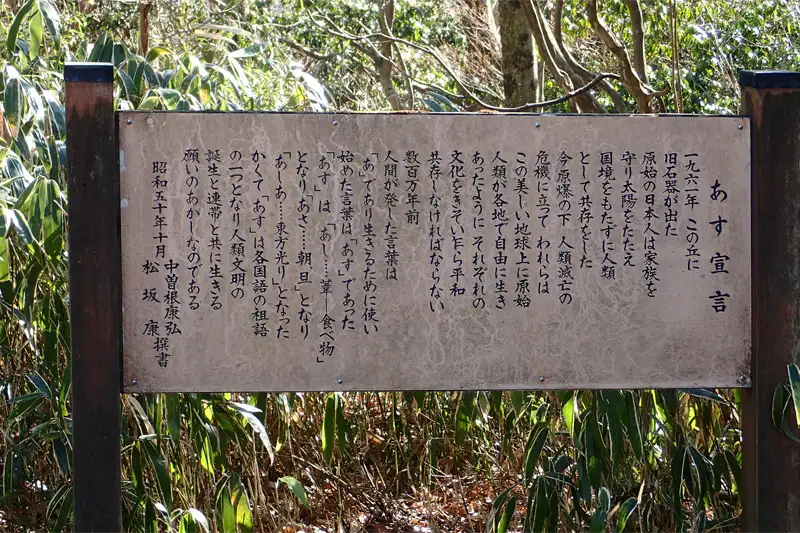 あす宣言
一九六一年 この丘に
旧石器が出た
原始の日本人は家族を
守り太陽をたたえ
国境をもたずに人類
として共存をした
今原爆の下 人類滅亡の
危機に立って われらは
この美しい地球上に原始
人類が各地で自由に生き
あったように それぞれの
文化をきそい乍ら平和
共存しなければならない
数百万年前
人間が発した言葉は
「あ」であり生きるために使い
始めた言葉は「あす」であった
「あす」は「あし……葦―食べ物」
となり「あさ……朝旦」となり
「あしあ……東方光り」となった
かくて「あす」は各国語の祖語
の一つとなり人類文明の
誕生と連帯と共に生きる
願いのあかしなのである
昭和五十年十月 中曽根康弘
松坂 康 撰書